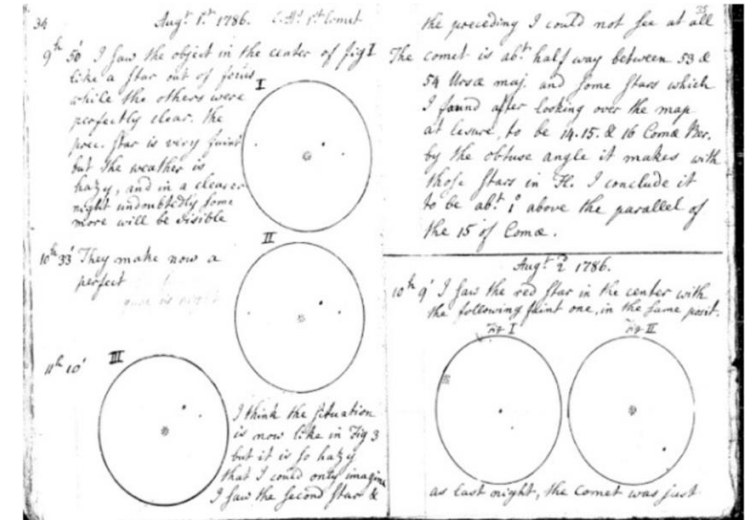 34 Augt. 1st. 1786. C.H. 1st Comet
9h 50' I saw the object in the center of fig I
like a star out of focus
while the others were
perfectly clear. the
prec. star is very faint
but the weather is
hazy, and in a clearer
night undoubtedly some
more will be visible
I
II
10h 33' They make now a
perfect
III
11h 10'
I think the situation
is now like in Fig 3
but it is so hazy
that I could only imagine
I saw the second star &
35
the preceding I could not see at all
The comet is abt. half way between 53 &
54 Ursæ maj. and some stars which
I found after looking over the map
at leisure, to be 14. 15. & 16 Comæ Ber.
by the obtuse angle it makes with
those stars in H. I conclude it
to be abt. 1° above the parallel of
the 15 of Comæ.
Augt. 2d 1786.
10h 9' I saw the red star in the center with
the following faint one, in the same posit.
Fig I Fig II
as last night, the Comet was just